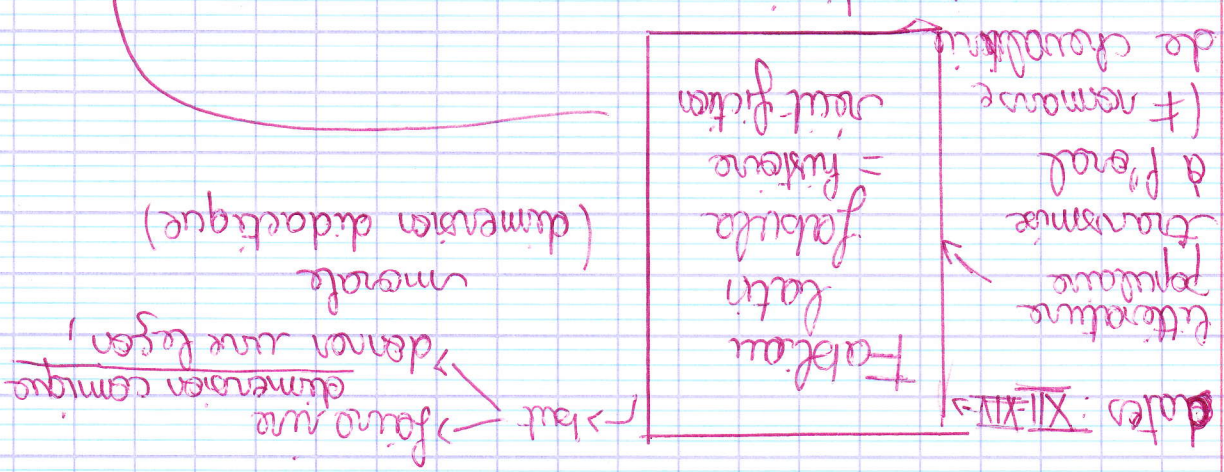 dates : XII-XIVe
littérature
populaire
transmise
à l'oral
(≠ romans
de chevalerie
Fabliau
latin
fabula
= histoire
récit fiction
→ but → faire rire
dimension comique
→ donner une leçon,
morale
(dimension didactique)